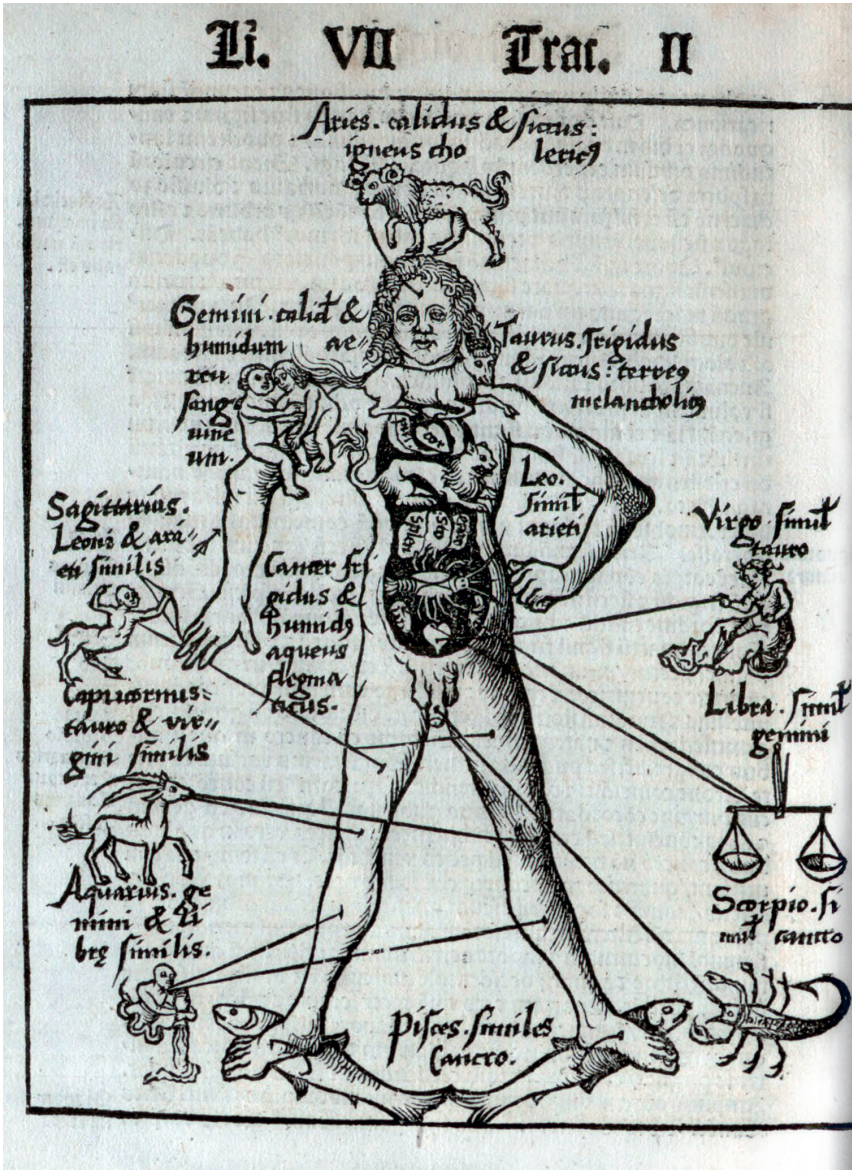 Li. VII Trac. II
Aries. calidus & siccus:
igneus cho lericꝰ
Gemini. calid &
humidum ae-
reu
sang
uine
um.
Taurus. frigidus
& siccus: terreꝰ
melancholicꝰ
cor
Leo.
Simil
arieti
Sagittarius.
Leoni & ari
eti similis
Splen
Cancer fri
gidus &
humidꝰ
aqueus
flegma
ticus.
Virgo. simil
tauro
Capricornus:
tauro & vir-
gini similis
Libra. simil
gemini
Aquarius. ge
mini & li
brę similis.
Scorpio. si
mil cancro
Pisces. similes
Cancro.